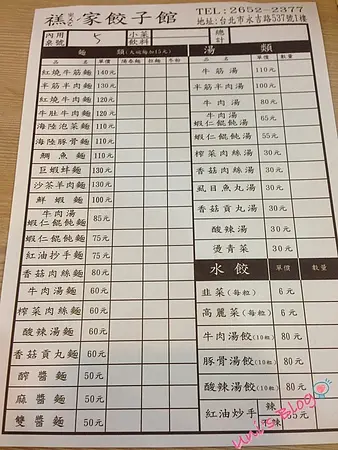 家餃子館
TEL: 2652-2377
地址:台北市永吉路537號1樓
內用
桌號 5
小菜
飲料
總計
麵 類(大碗每加15元)
品名 單價
紅燒牛筋麵 140元
半筋半肉麵 130元
紅燒牛肉麵 100元
牛肚牛肉麵 110元
海陸泡菜麵 110元
海陸豚骨麵 110元
鯛魚麵 110元
巨蝦蚌麵 130元
沙茶羊肉麵 130元
鮮蝦麵 100元
牛肉湯
蝦仁餛飩麵 85元
蝦仁餛飩麵 75元
紅油抄手麵 75元
香菇肉絲麵 80元
牛肉湯麵 60元
榨菜肉絲麵 60元
酸辣湯麵 60元
香菇貢丸麵 60元
酢醬麵 50元
麻醬麵 50元
雙醬麵 50元
湯 類
品名 單價 數量
牛筋湯 110元
半筋半肉湯 100元
牛肉湯 80元
牛肉湯
蝦仁餛飩湯 65元
蝦仁餛飩湯 55元
榨菜肉絲湯 30元
香菇肉絲湯 50元
虱目魚丸湯 30元
香菇貢丸湯 30元
酸辣湯 30元
燙青菜 30元
水餃 單價 數量
韭菜(每粒) 6元
高麗菜(每粒) 6元
牛肉湯餃(10粒) 80元
豚骨湯餃(10粒) 80元
酸辣湯餃(10粒) 80元
紅油炒手 辣
不辣 65元